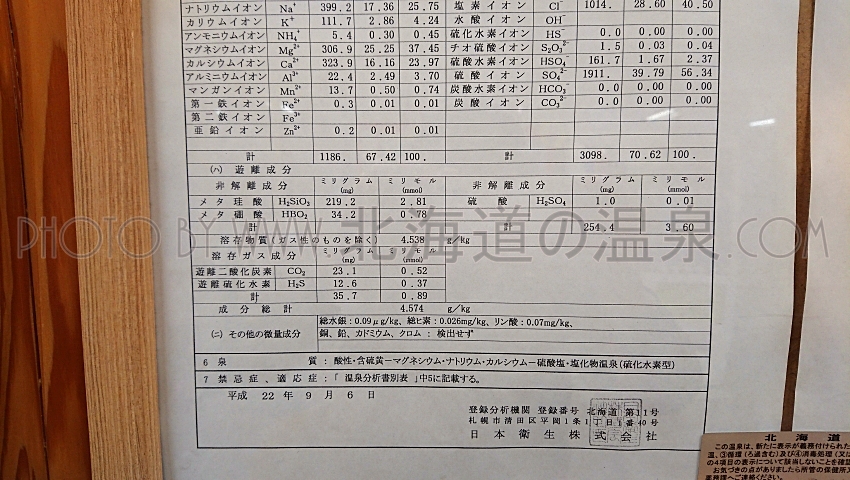 ナトリウムイオン Na⁺ 399.2 17.36 25.75 塩素イオン Cl⁻ 1014. 28.60 40.50
カリウムイオン K⁺ 111.7 2.86 4.24 水酸イオン OH⁻
アンモニウムイオン NH₄⁺ 5.4 0.30 0.45 硫化水素イオン HS⁻ 0.0 0.00 0.00
マグネシウムイオン Mg²⁺ 306.9 25.25 37.45 チオ硫酸イオン S₂O₃²⁻ 1.5 0.03 0.04
カルシウムイオン Ca²⁺ 323.9 16.16 23.97 硫酸水素イオン HSO₄⁻ 161.7 1.67 2.37
アルミニウムイオン Al³⁺ 22.4 2.49 3.70 硫酸イオン SO₄²⁻ 1911. 39.79 56.34
マンガンイオン Mn²⁺ 13.7 0.50 0.74 炭酸水素イオン HCO₃⁻ 0.0 0.00 0.00
第一鉄イオン Fe²⁺ 0.3 0.01 0.01 炭酸イオン CO₃²⁻ 0.0 0.00 0.00
第二鉄イオン Fe³⁺
亜鉛イオン Zn²⁺ 0.2 0.01 0.01
計 1186. 67.42 100. 計 3098. 70.62 100.
(ハ) 遊離成分
非解離成分 ミリグラム(mg) ミリモル(mmol) 非解離成分 ミリグラム(mg) ミリモル(mmol)
メタ珪酸 H₂SiO₃ 219.2 2.81 硫酸 H₂SO₄ 1.0 0.01
メタ硼酸 HBO₂ 34.2 0.78
計 254.4 3.60
溶存物質(ガス性のものを除く) 4.538 g/kg
溶存ガス成分 ミリグラム(mg) ミリモル(mmol)
遊離二酸化炭素 CO₂ 23.1 0.52
遊離硫化水素 H₂S 12.6 0.37
計 35.7 0.89
成分総計 4.574 g/kg
(ニ) その他の微量成分 総水銀:0.09μg/kg、総ヒ素:0.026mg/kg、リン酸:0.07mg/kg、
銅、鉛、カドミウム、クロム:検出せず
6 泉質:酸性・含硫黄-マグネシウム・ナトリウム・カルシウム-硫酸塩・塩化物温泉(硫化水素型)
7 禁忌症、適応症:「温泉分析書別表」中5に記載する。
平成 22年 9月 6日
登録分析機関 登録番号 北海道 第11号
札幌市清田区平岡1条1丁目1番40号
日本衛生株式会社
PHOTO BY WWW.北海道の温泉.COM
北海道
この温泉は、新たに表示が義務付けられた
温、③循環(ろ過含む)及び④消毒処理(又は
の4項目の表示について該当しないことを確認
お気づきの点がありましたら所管の保健所
業務課へご連絡ください。